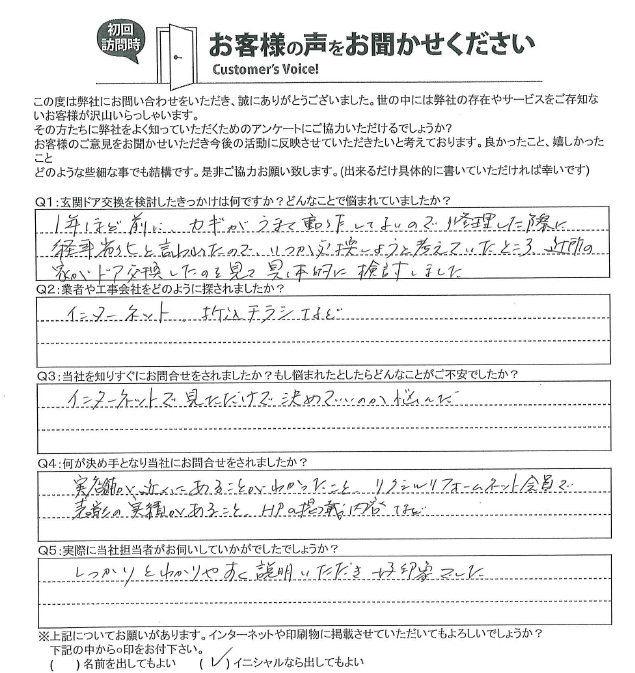 初回
訪問時
お客様の声をお聞かせください
Customer's Voice!
この度は弊社にお問い合わせをいただき、誠にありがとうございました。世の中には弊社の存在やサービスをご存知な
いお客様が沢山いらっしゃいます。
その方たちに弊社をよく知っていただくためのアンケートにご協力いただけるでしょうか?
お客様のご意見をお聞かせいただき今後の活動に反映させていきたいと考えております。良かったこと、嬉しかった
こと
どのような些細な事でも結構です。是非ご協力お願い致します。(出来るだけ具体的に書いていただければ幸いです)
Q1:玄関ドア交換を検討したきっかけは何ですか?どんなことで悩まれていましたか?
1年ほど前に、カギがうまく動作してないので修理した際に
経年劣化と言われたので、いつか交換しようと考えていたところ 近所の
家がドア交換したのを見て具体的に検討しました
Q2:業者や工事会社をどのように探されましたか?
インターネット、折込チラシなど
Q3:当社を知りすぐにお問合せをされましたか?もし悩まれたとしたらどんなことがご不安でしたか?
インターネットで見ただけで決めていいのか悩んだ
Q4:何が決め手となり当社にお問合せをされましたか?
実店舗が近くにあることがわかったこと、リクシルリフォームネット会員で
表彰の実績があること、HPの掲載内容など
Q5:実際に当社担当者がお伺いしていかがでしたでしょうか?
しっかりとわかりやすく説明いただき好印象でした
※上記についてお願いがあります。インターネットや印刷物に掲載させていただいてもよろしいでしょうか?
下記の中から○印をお付下さい。
( ) 名前を出してもよい ( ✓ ) イニシャルなら出してもよい